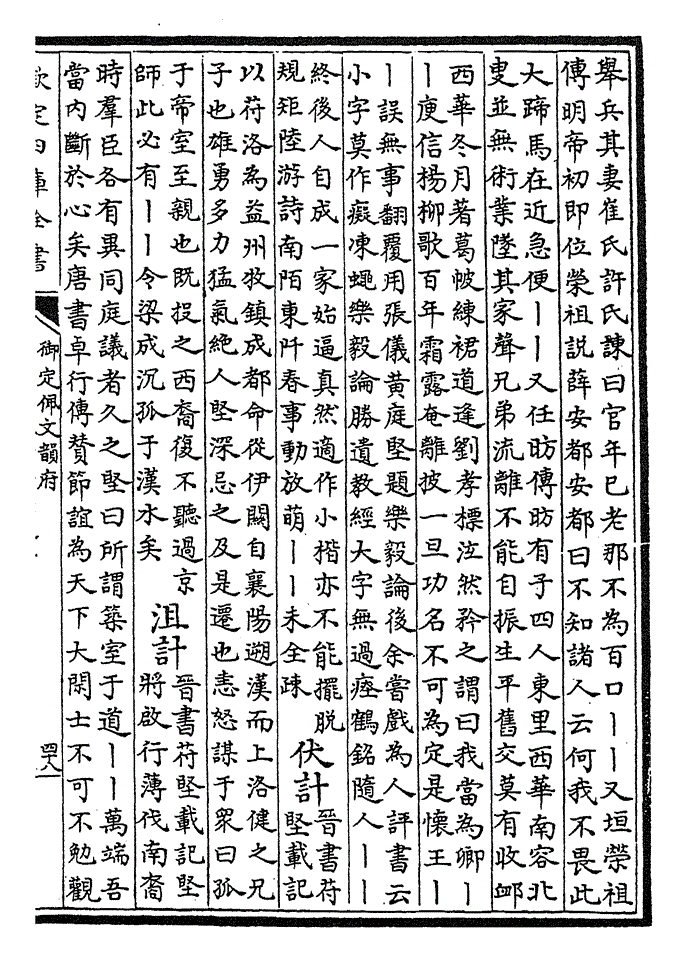 舉兵其妻崔氏許氏諫曰官年已老那不為百口丨丨又垣榮祖
傳明帝初即位榮祖説薛安都安都曰不知諸人云何我不畏此
大蹄馬在近急便丨丨又任昉傳昉有子四人東里西華南容北
叟並無術業墜其家聲兄弟流離不能自振生平舊交莫有收䘏
西華冬月著葛帔練裙道逢劉孝標泣然矜之謂曰我當為卿丨
丨庾信楊柳歌百年霜露奄離披一旦功名不可為定是懷王丨
丨誤無事翻覆用張儀黄庭堅題樂毅論後余嘗戲為人評書云
小字莫作癡凍蠅樂毅論勝遺教經大字無過瘞鶴銘隨人丨丨
終後人自成一家始逼真然適作小楷亦不能擺脱
規矩陸游詩南陌東阡春事動放萌丨丨未全疎
伏計
晉書苻
堅載記
以苻洛為益州牧鎮成都命從伊闕自襄陽遡漢而上洛健之兄
子也雄勇多力猛氣絶人堅深忌之及是遷也恚怒謀于衆曰孤
于帝室至親也既投之西裔復不聽過京
師此必有丨丨令梁成沉孤于漢水矣
沮計
晉書苻堅載記堅
將啟行薄伐南裔
時羣臣各有異同庭議者久之堅曰所謂築室于道丨丨萬端吾
當内斷於心矣唐書卓行傳贊節誼為天下大閑士不可不勉觀
欽定四庫全書
御定佩文韻府
四十八